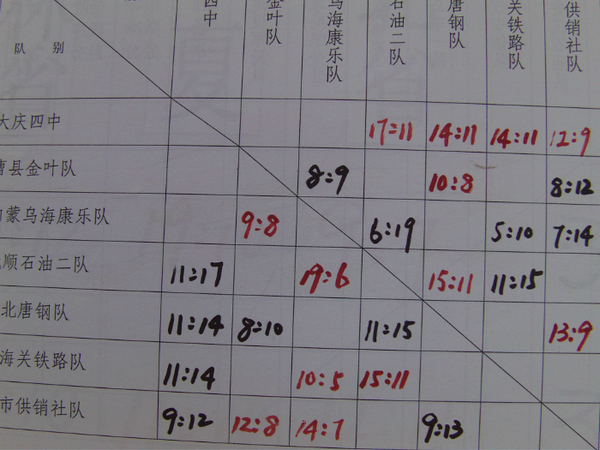 四中 金叶队 乌海康乐队 石油二队 唐钢队 关铁路队 供销社队
队别
大庆四中 17:11 14:11 14:11 12:9
曹县金叶队 8:9 10:8 8:12
内蒙乌海康乐队 9:8 6:19 5:10 7:14
顺石油二队 11:17 19:6 15:11 11:15
北唐钢队 11:14 8:10 11:15 13:9
海关铁路队 11:14 10:5 15:11
市供销社队 9:12 12:8 14:7 9:13